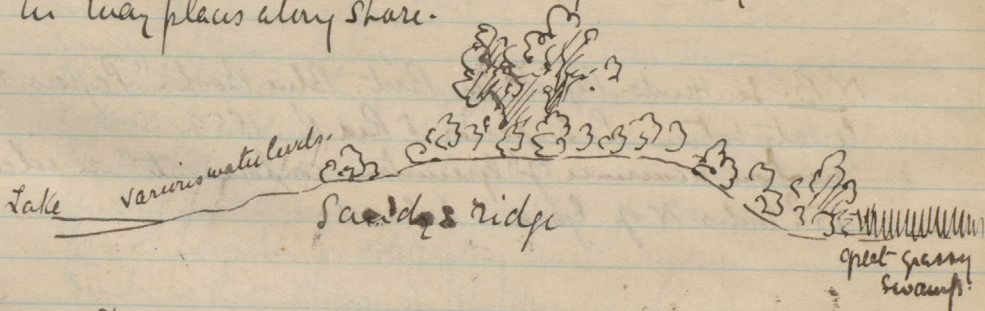 in many places along shore.
various water levels.
Lake
Sandy ridge
great grassy
swamp.